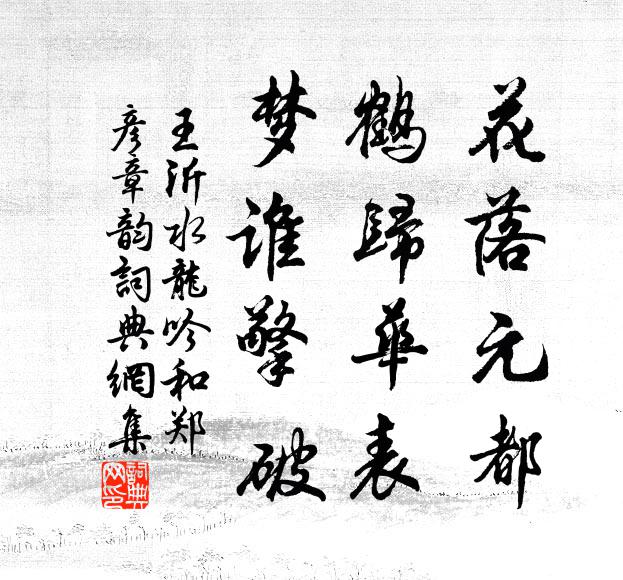 花落元都
鶴歸華表
梦谁擎破
王沂水龍吟和郑
彦章韵詞典網集
詞典网印